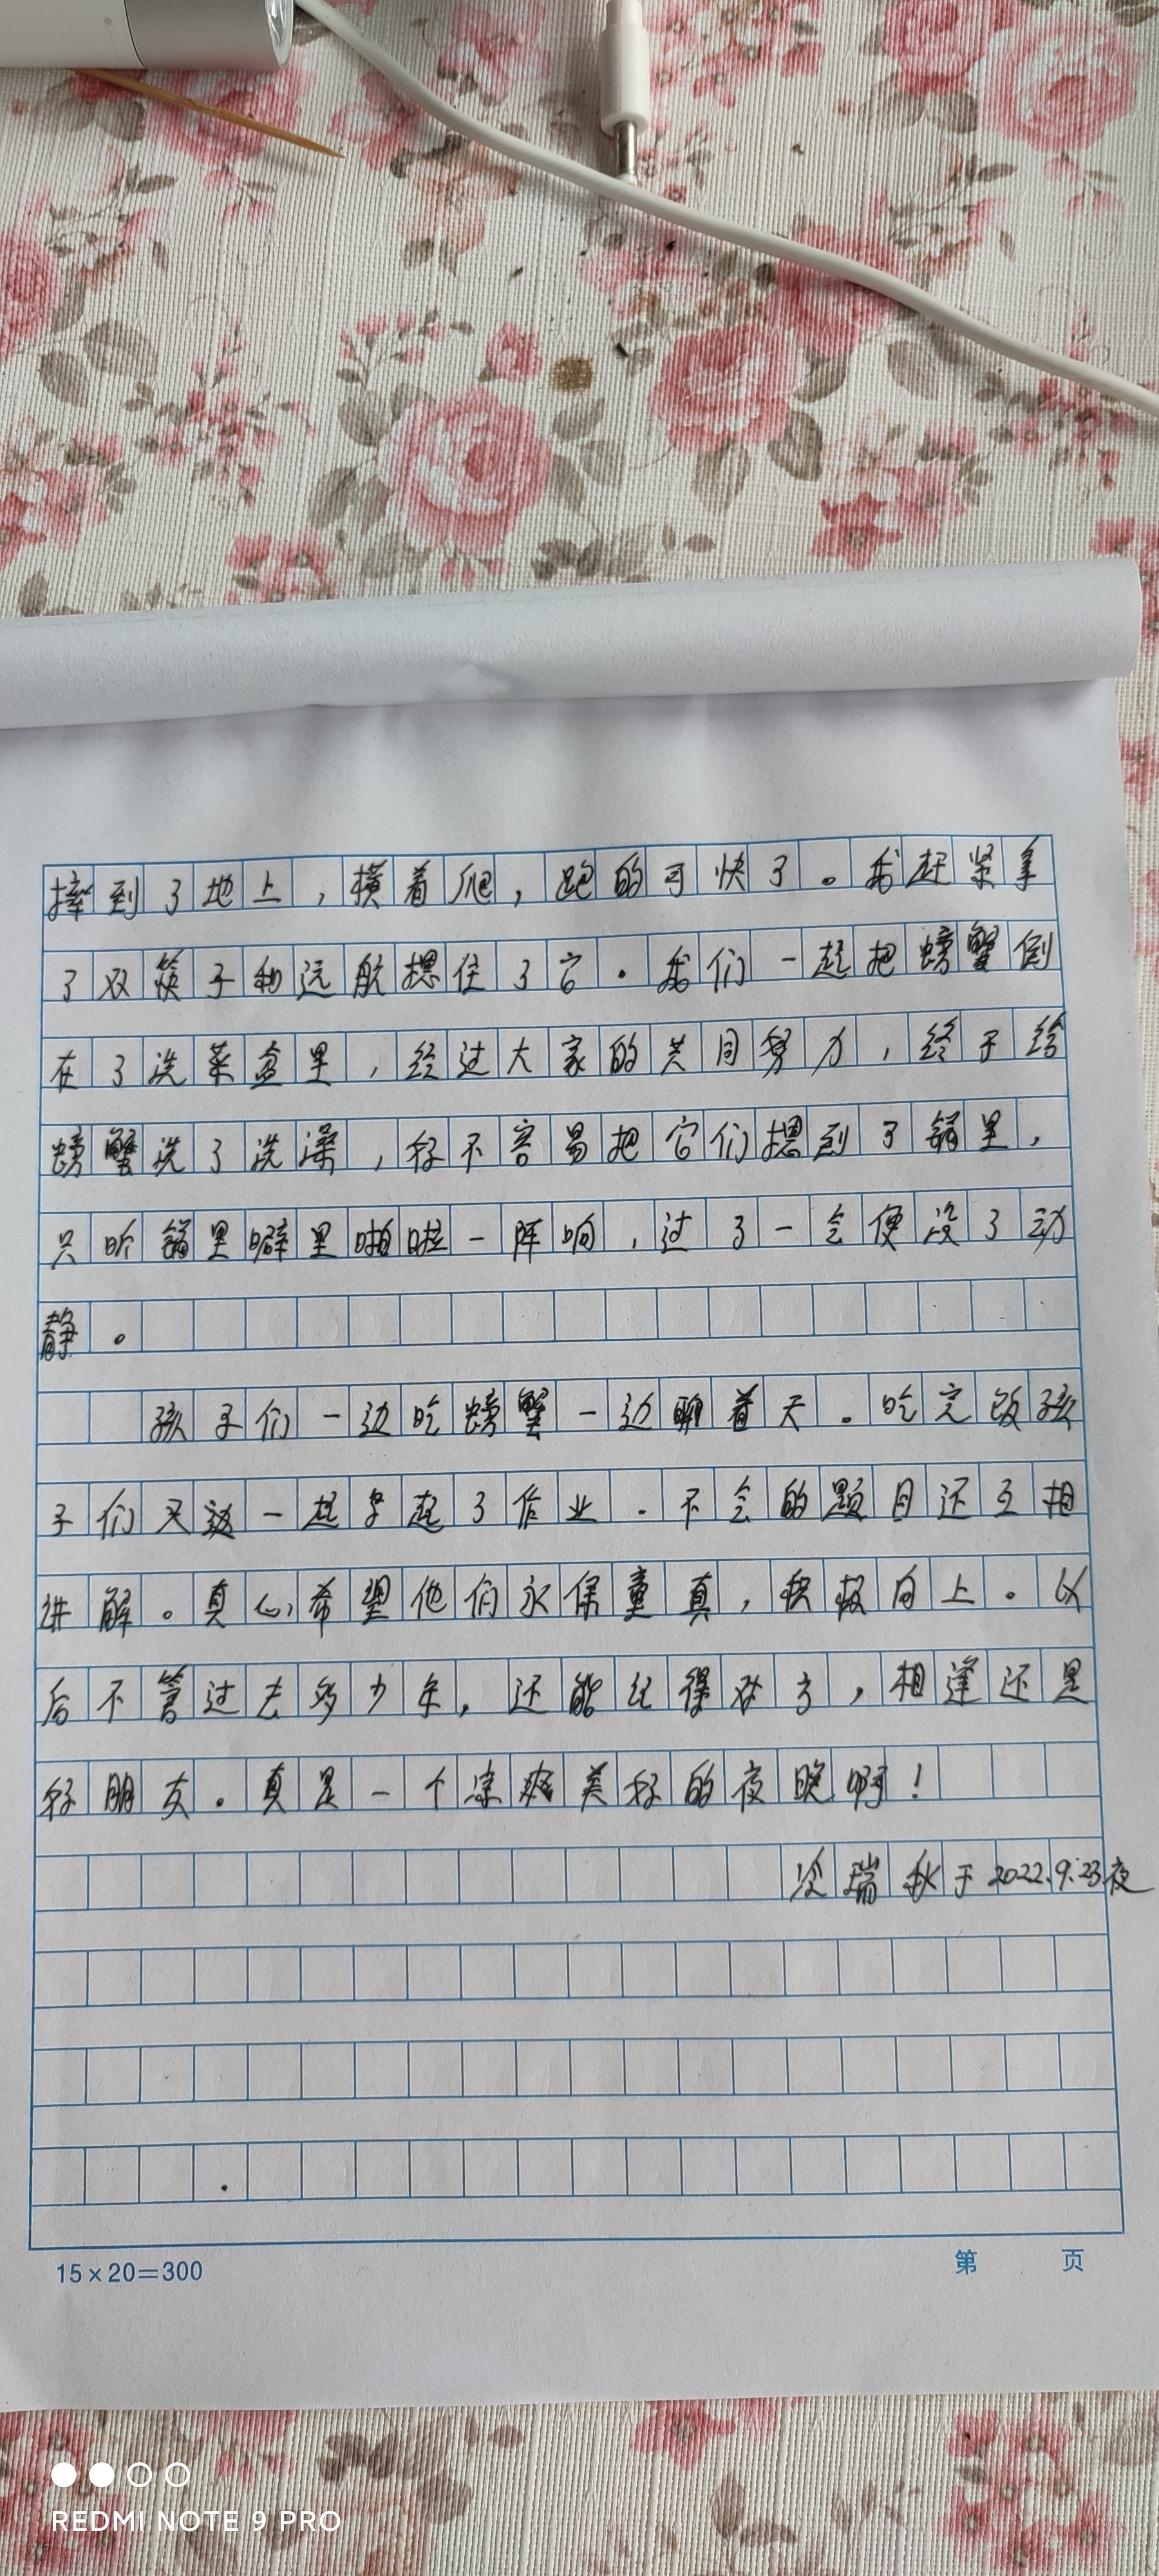 摔到了地上，横着爬，跑的可快了。我赶紧拿
了双筷子和远航摁住了它。我们一起把螃蟹倒
在了洗菜盆里，经过大家的共同努力，终于给
螃蟹洗了洗澡，好不容易把它们摁到了锅里，
只听锅里噼里啪啦一阵响，过了一会便没了动
静。
孩子们一边吃螃蟹一边聊着天。吃完饭孩
子们又一起写起了作业。不会的题目还互相
讲解。真心希望他们永保童真，积极向上。以
后不管过去多少年，还能记得对方，相逢还是
好朋友。真是一个凉爽美好的夜晚啊！
冷瑞秋于2022.9.23夜
15×20=300
第 页
REDMI NOTE 9 PRO